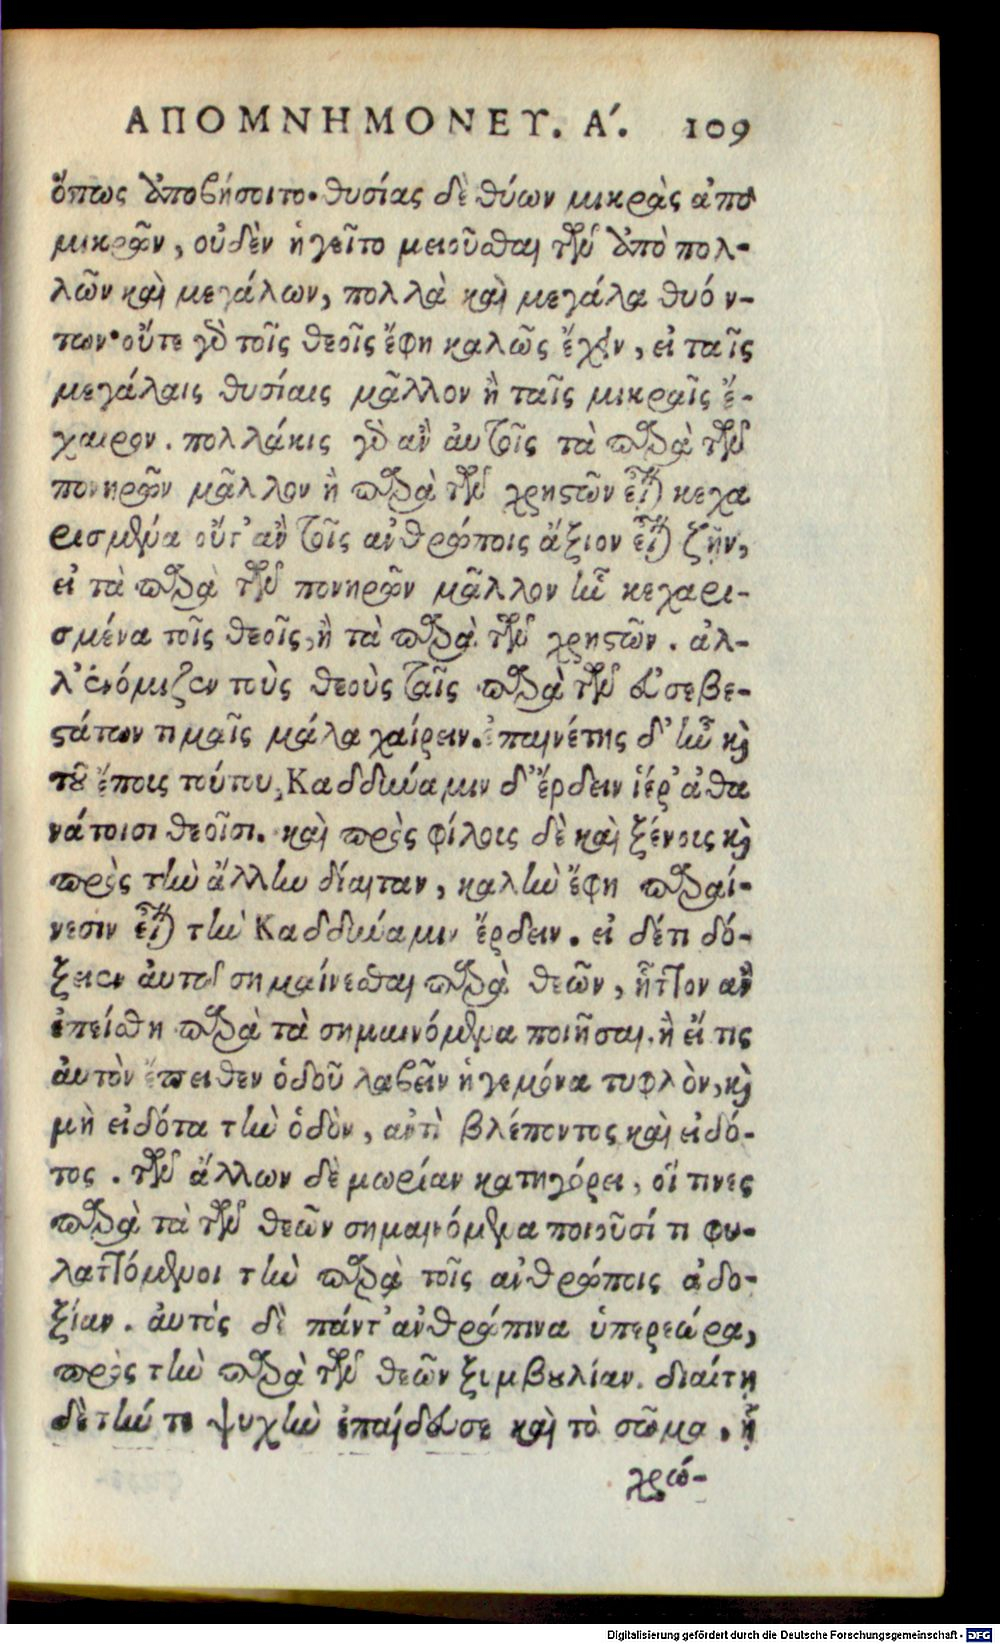 ΑΠΟΜΝΗΜΟΝΕΥ. Α΄. 109
ὅπως ἀποβήσοιτο. θυσίας δὲ θύων μικρὰς ἀπὸ
μικρῶν, οὐδὲν ἡγεῖτο μειοῦσθαι τῶν ἀπὸ πολ-
λῶν καὶ μεγάλων, πολλὰ καὶ μεγάλα θυόν-
των· οὔτε γὸ τοῖς θεοῖς ἔφη καλῶς ἔχειν, εἰ ταῖς
μεγάλαις θυσίαις μᾶλλον ἢ ταῖς μικραῖς ἔ-
χαιρον. πολλάκις γὸ ἂν ἀυτοῖς τὰ παρὰ τῶν
πονηρῶν μᾶλλον ἢ παρὰ τῶν χρηστῶν εἶναι κεχα
ρισμένα οὔτ' ἂν τοῖς ἀνθρώποις ἄξιον εἶναι ζῆν,
εἰ τὰ παρὰ τῶν πονηρῶν μᾶλλον ἦν κεχαρι-
σμένα τοῖς θεοῖς, ἢ τὰ παρὰ τῶν χρηστῶν. ἀλ-
λ' ἐνόμιζεν τοὺς θεοὺς ταῖς παρὰ τῶν εὐσεβε-
στάτων τιμαῖς μάλα χαίρειν. ἐπαινέτης δ' ἦν καὶ
τοῦ ἔποις τούτου, Καδδύναμιν δ' ἔρδειν ἱέρ' ἀθα
νάτοισι θεοῖσι. καὶ πρὸς φίλοις δὲ καὶ ξένοις καὶ
πρὸς τὴν ἄλλην δίαιταν, καλὴν ἔφη παραί-
νεσιν εἶναι τὴν Καδδύναμιν ἔρδειν. εἰ δέ τι δό-
ξειεν ἀυτῷ σημαίνεσθαι παρὰ θεῶν, ἧττον ἂν
ἐπείσθη παρὰ τὰ σημαινόμενα ποιῆσαι. ἢ εἴ τις
ἀυτὸν ἔπειθεν ὁδοῦ λαβεῖν ἡγεμόνα τυφλὸν, καὶ
μὴ εἰδότα τὴν ὁδὸν, ἀντὶ βλέποντος καὶ εἰδό-
τος. τῶν ἄλλων δὲ μωρίαν κατηγόρει, οἵ τινες
παρὰ τὰ τῶν θεῶν σημαινόμενα ποιοῦσί τι φυ-
λαττόμενοι τὴν παρὰ τοῖς ἀνθρώποις ἀδο-
ξίαν. ἀυτὸς δὲ πάντ' ἀνθρώπινα ὑπερεώρα,
πρὸς τὴν παρὰ τῶν θεῶν ξυμβουλίαν. διαίτῃ
δὲ τήν τε ψυχὴν ἐπαίδευσε καὶ τὸ σῶμα, ᾗ
χρώ-
Digitalisierung gefördert durch die Deutsche Forschungsgemeinschaft - DFG